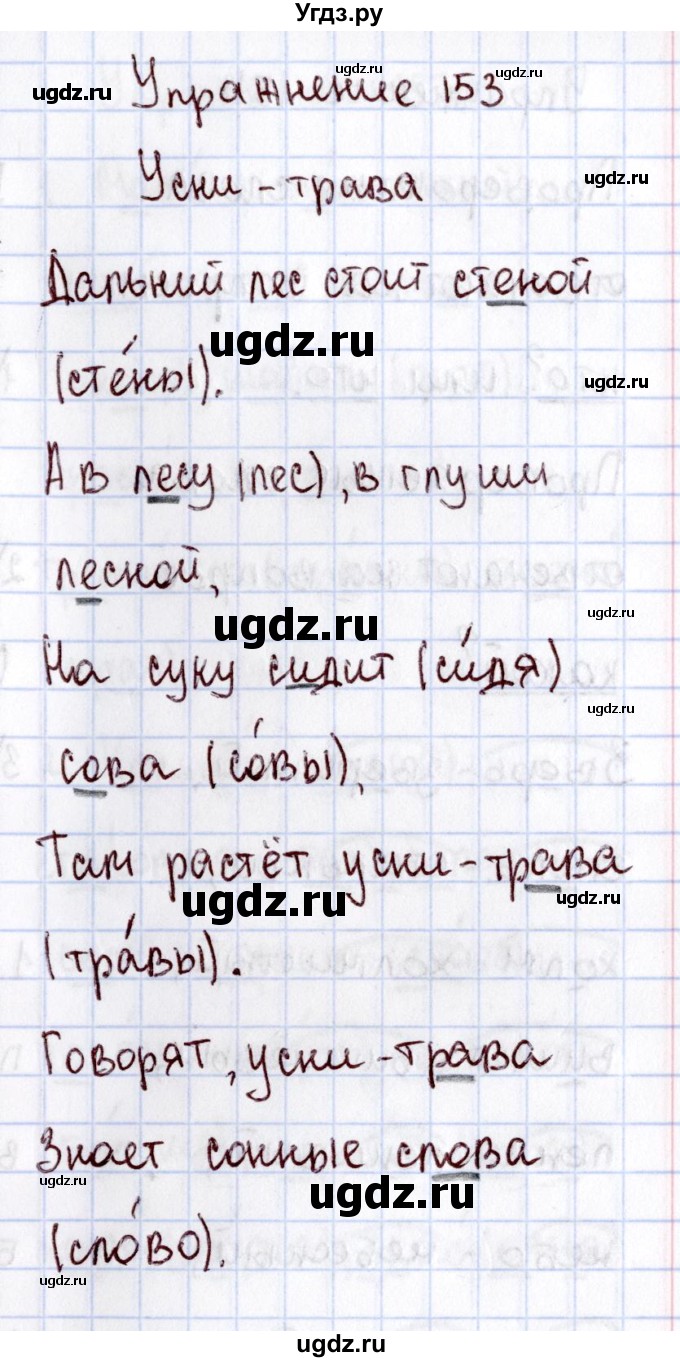 Угдз.ру
ugdz.ru
ugdz.ru
Упражнение 153
Усни-трава
ugdz.ru
Дальний лес стоит стеной
ugdz.ru
(сте́ны).
ugdz.ru
А в лесу (лес), в глуши
лесной,
ugdz.ru
ugdz.ru
На суку сидит (си́дя)
ugdz.ru
сова (со́вы),
Там растёт усни-трава
ugdz.ru
ugdz.ru
(тра́вы).
Говорят, усни-трава
Знает сонные слова
ugdz.ru
ugdz.ru
(сло́во).
ugdz.ru
ugdz.ru